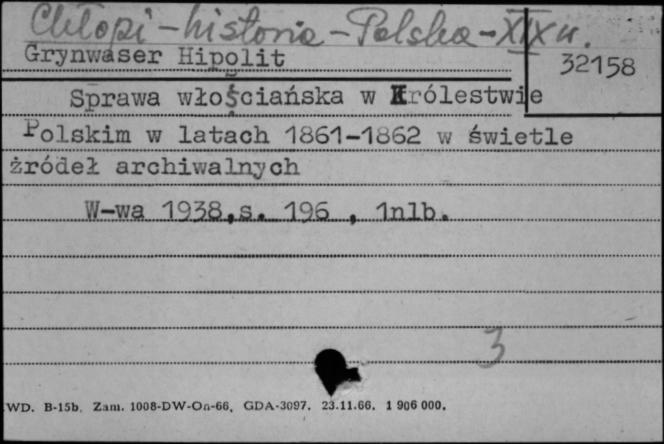 Chłopi - historia - Polska - XIX w.
Grynwaser Hipolit
32158
Sprawa włościańska w Królestwie
Polskim w latach 1861-1862 w świetle
źródeł archiwalnych
W-wa 1938,s. 196 , 1nlb.
3
WD. B-15b. Zam. 1008-DW-On-66. GDA-3097. 23.11.66. 1 906 000.